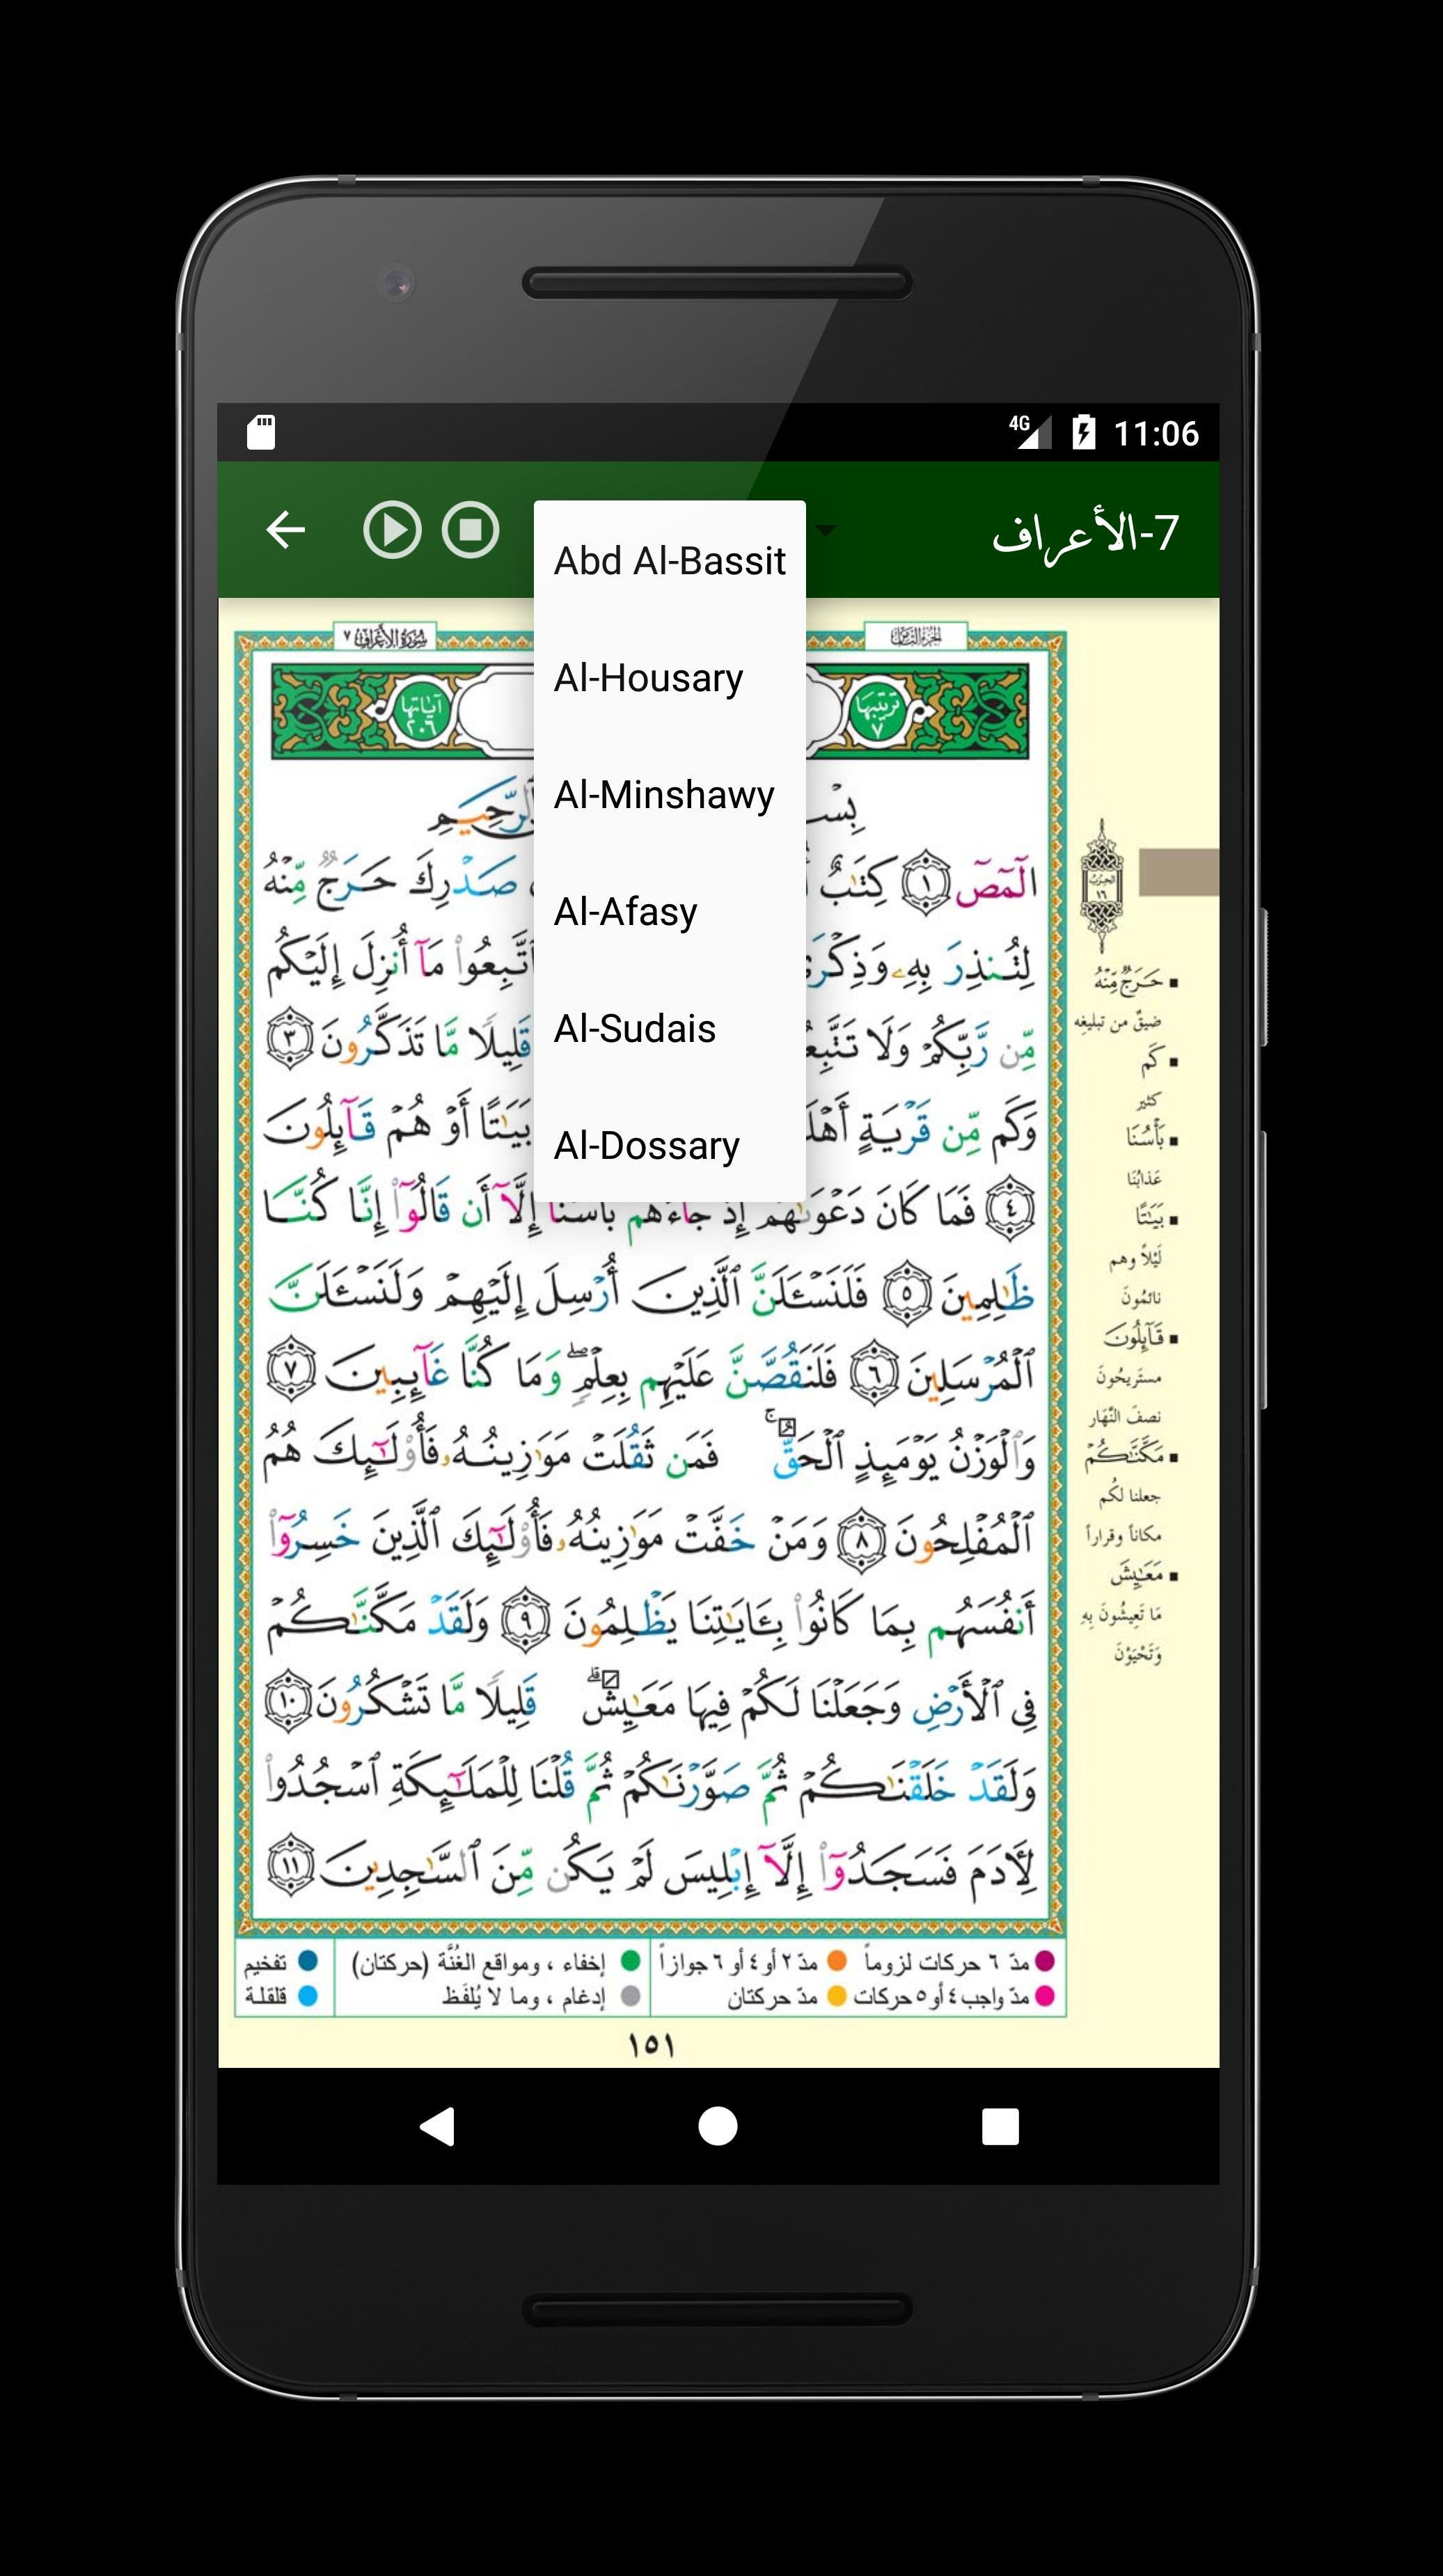 4G 11:06
7-الأعراف
Abd Al-Bassit
Al-Housary
Al-Minshawy
Al-Afasy
Al-Sudais
Al-Dossary
سورة الأعراف ٧
الجزء الثامن
ترتيبها ٧
آياتها ٢٠٦
بِسْ الرَّحِيمِ
الٓمٓصٓ ١ كِتَٰبٌ صَدْرِكَ حَرَجٌ مِّنْهُ
لِتُنذِرَ بِهِۦ وَذِكْرَىٰ ٱتَّبِعُوا۟ مَآ أُنزِلَ إِلَيْكُم
مِّن رَّبِّكُمْ وَلَا تَتَّبِعُ قَلِيلًا مَّا تَذَكَّرُونَ ٣
وَكَم مِّن قَرْيَةٍ أَهْلَ بَيَٰتًا أَوْ هُمْ قَآئِلُونَ
٤ فَمَا كَانَ دَعْوَىٰهُمْ إِذْ جَآءَهُم بَأْسُنَآ إِلَّآ أَن قَالُوٓا۟ إِنَّا كُنَّا
ظَٰلِمِينَ ٥ فَلَنَسْـَٔلَنَّ ٱلَّذِينَ أُرْسِلَ إِلَيْهِمْ وَلَنَسْـَٔلَنَّ
ٱلْمُرْسَلِينَ ٦ فَلَنَقُصَّنَّ عَلَيْهِم بِعِلْمٍۖ وَمَا كُنَّا غَآئِبِينَ ٧
وَٱلْوَزْنُ يَوْمَئِذٍ ٱلْحَقُّۚ فَمَن ثَقُلَتْ مَوَٰزِينُهُۥ فَأُو۟لَٰٓئِكَ هُمُ
ٱلْمُفْلِحُونَ ٨ وَمَنْ خَفَّتْ مَوَٰزِينُهُۥ فَأُو۟لَٰٓئِكَ ٱلَّذِينَ خَسِرُوٓا۟
أَنفُسَهُم بِمَا كَانُوا۟ بِـَٔايَٰتِنَا يَظْلِمُونَ ٩ وَلَقَدْ مَكَّنَّٰكُمْ
فِى ٱلْأَرْضِ وَجَعَلْنَا لَكُمْ فِيهَا مَعَٰيِشَۗ قَلِيلًا مَّا تَشْكُرُونَ ١٠
وَلَقَدْ خَلَقْنَٰكُمْ ثُمَّ صَوَّرْنَٰكُمْ ثُمَّ قُلْنَا لِلْمَلَٰٓئِكَةِ ٱسْجُدُوا۟
لِـَٔادَمَ فَسَجَدُوٓا۟ إِلَّآ إِبْلِيسَ لَمْ يَكُن مِّنَ ٱلسَّٰجِدِينَ ١١
الحزب
١٦
حَرَجٌ مِّنْهُ
ضيقٌ من تبليغه
كَم
كثير
بَأْسُنَا
عَذابُنَا
بَيَٰتًا
لَيْلاً وهم
نائمُونَ
قَآئِلُونَ
مستَريحُونَ
نصفَ النَّهَار
مَكَّنَّٰكُمْ
جعلنا لكُم
مكاناً وقراراً
مَعَٰيِشَ
مَا تَعِيشُونَ بِهِ
وَتَحْيَوْنَ
مدّ ٦ حركات لزوماً مدّ ٢ أو ٤ أو ٦ جوازاً إخفاء ، ومواقع الغُنَّة (حركتان) تفخيم
مدّ واجب ٤ أو ٥ حركات مدّ حركتان إدغام ، وما لا يُلفَظ قلقلة
١٥١